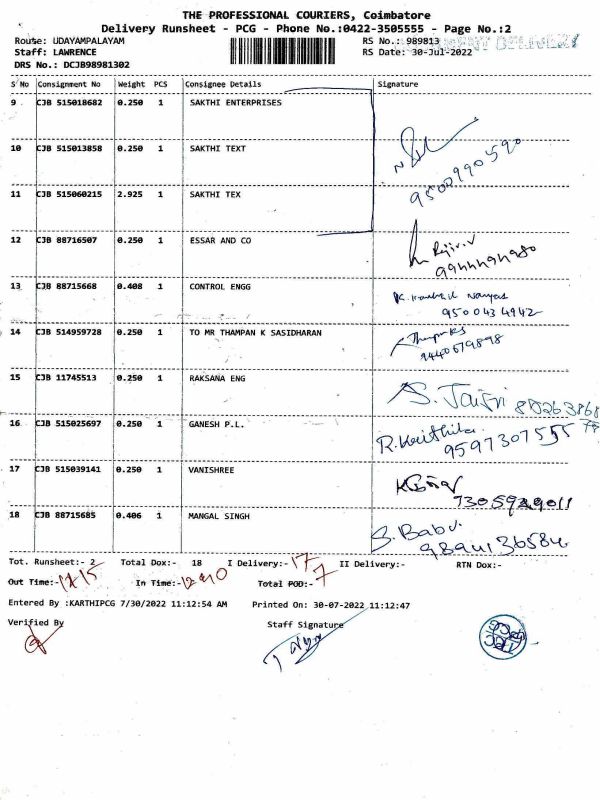 THE PROFESSIONAL COURIERS, Coimbatore
Delivery Runsheet - PCG - Phone No.:0422-3505555 - Page No.:2
Route: UDAYAMPALAYAM RS No.: 989813
Staff: LAWRENCE RS Date: 30-Jul-2022
DRS No.: DCJB98981302
S No Consignment No Weight PCS Consignee Details Signature
9 CJB 515018682 0.250 1 SAKTHI ENTERPRISES
10 CJB 515013858 0.250 1 SAKTHI TEXT
9500990590
11 CJB 515060215 2.925 1 SAKTHI TEX
12 CJB 88716507 0.250 1 ESSAR AND CO
13 CJB 88715668 0.408 1 CONTROL ENGG
9500434942
14 CJB 514959728 0.250 1 TO MR THAMPAN K SASIDHARAN
9440679898
15 CJB 11745513 0.250 1 RAKSANA ENG
16 CJB 515025697 0.250 1 GANESH P.L. R.Keithika
9597307555
17 CJB 515039141 0.250 1 VANISHREE
7305929011
18 CJB 88715685 0.406 1 MANGAL SINGH S. Babu
9894136584
Tot. Runsheet:- 2 Total Dox:- 18 I Delivery:- 17 II Delivery:- RTN Dox:-
Out Time:- In Time:- Total POD:- 7
Entered By :KARTHIPCG 7/30/2022 11:12:54 AM Printed On: 30-07-2022 11:12:47
Verified By Staff Signature